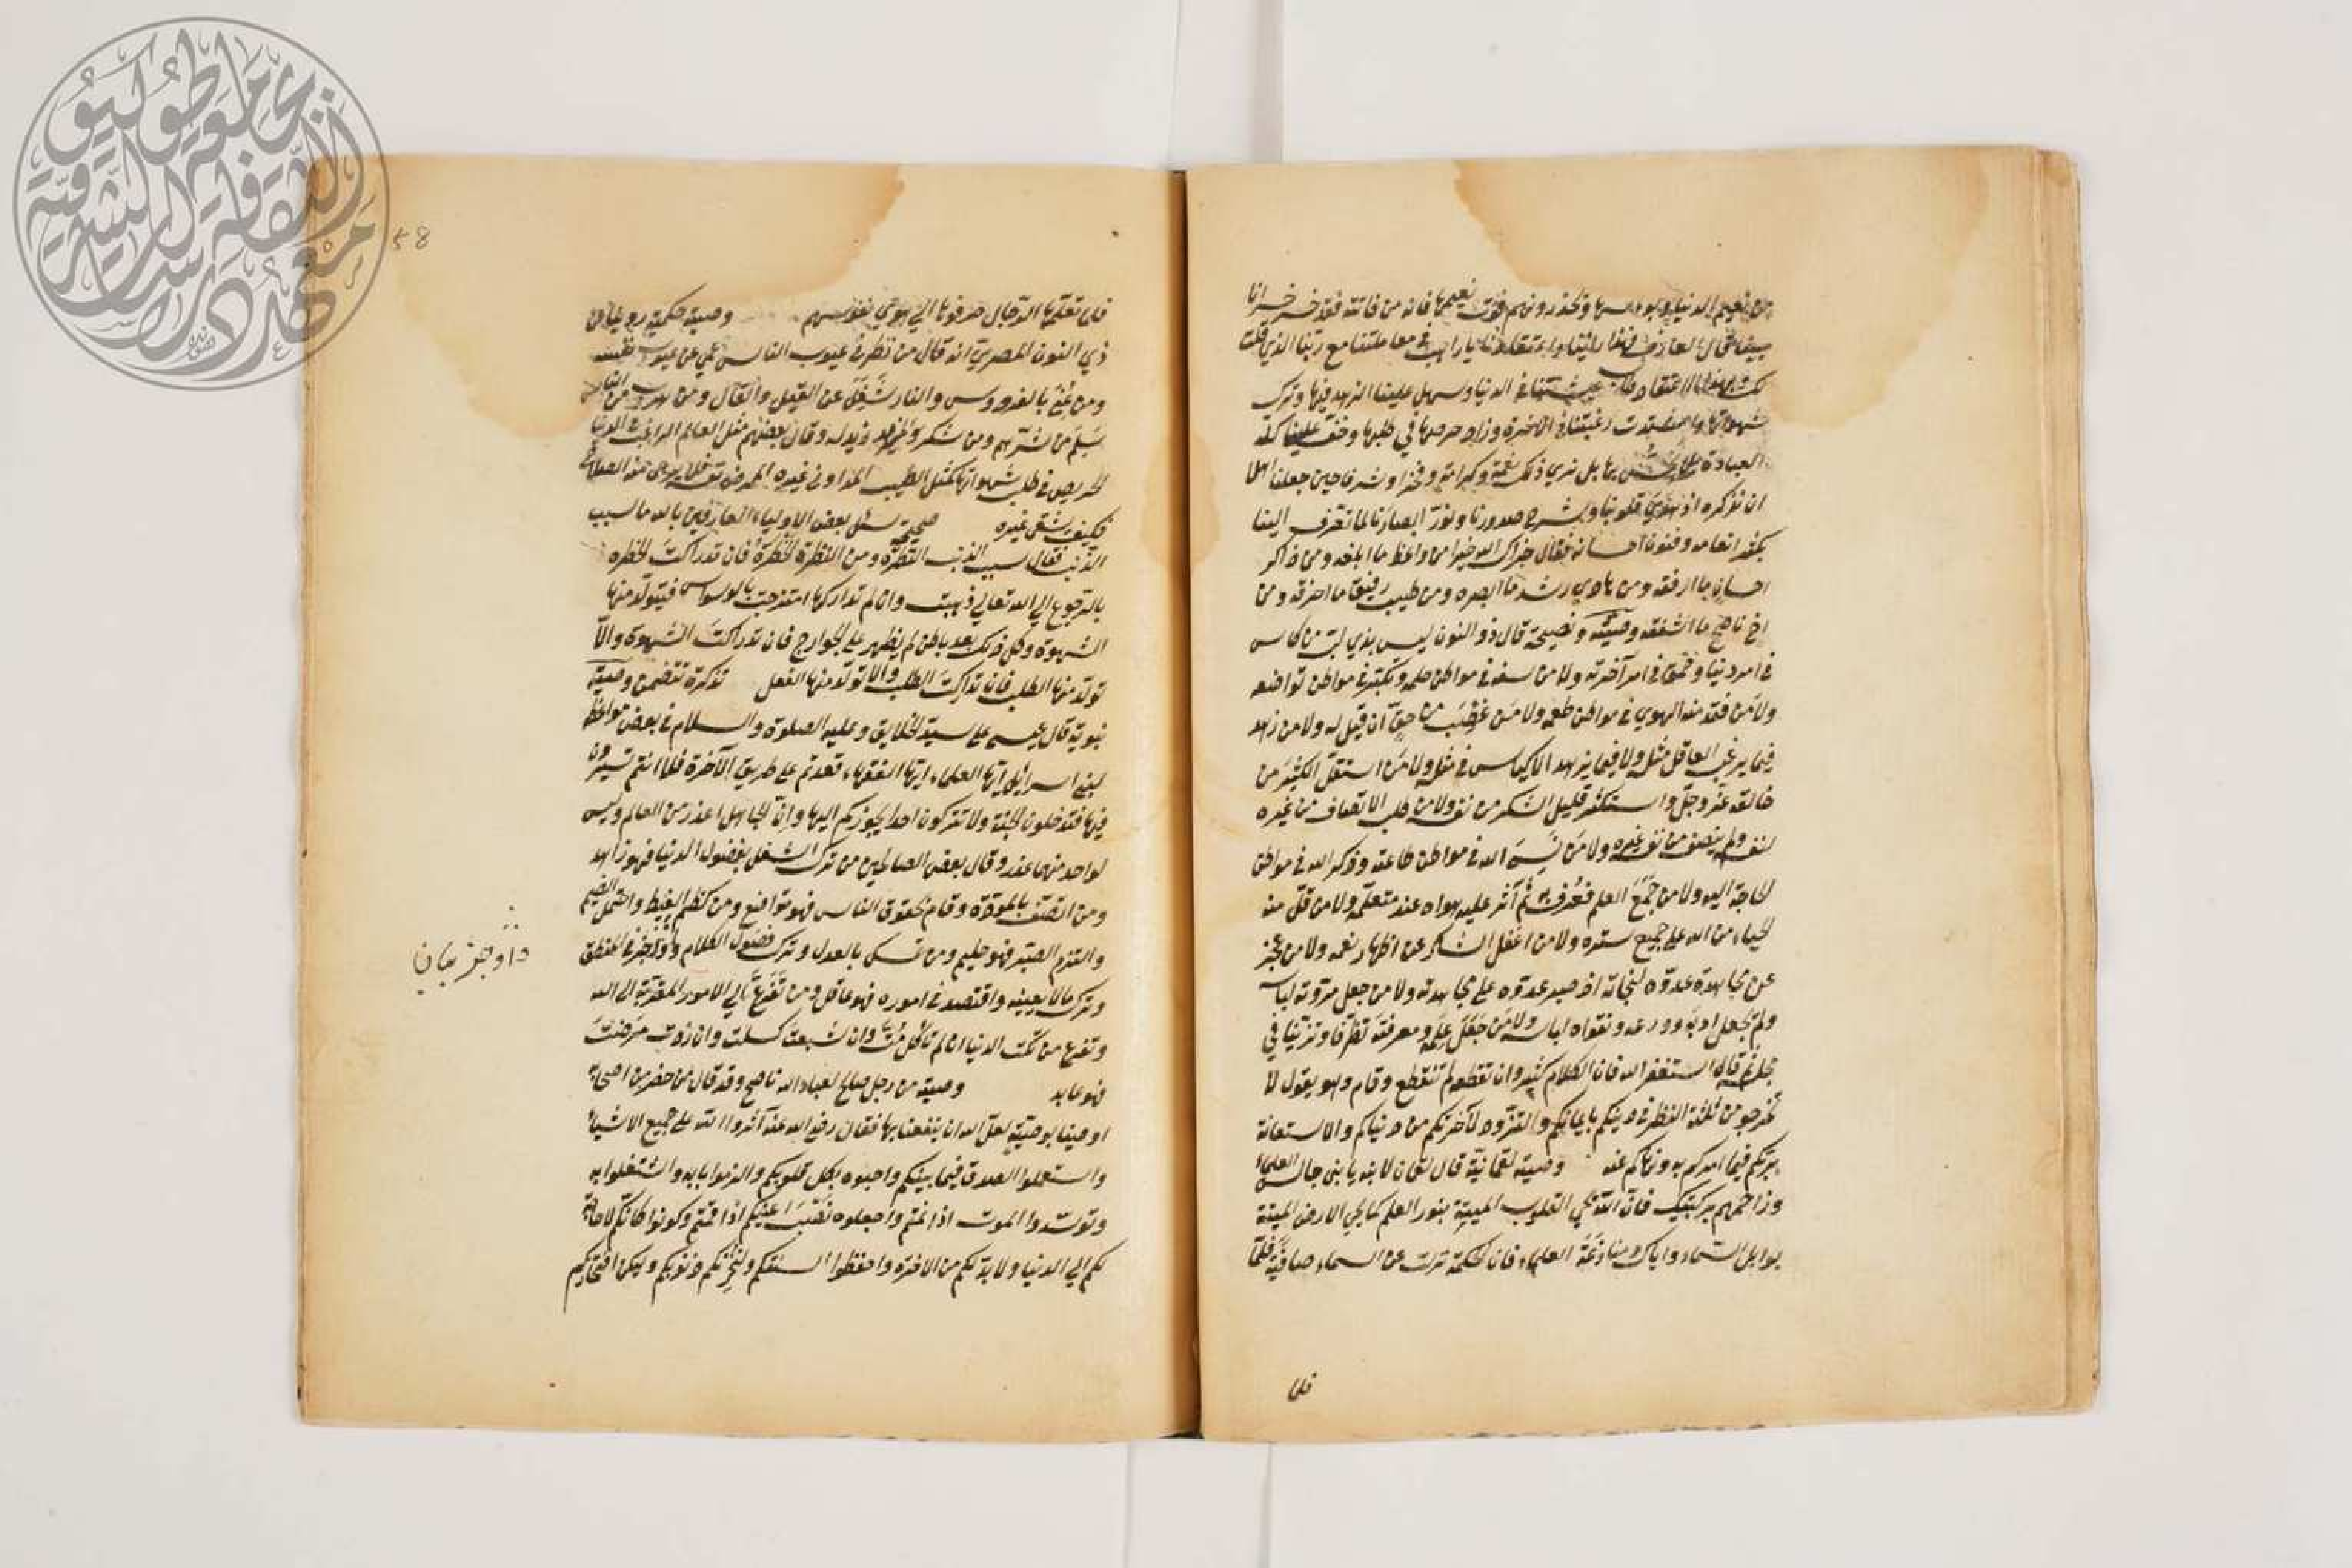 من نعيم الدنيا وبؤسها وتحذرونهم فوت نعيمها فانه من فاتته فقد خسر خسرانا
مبينا فقال العارف فهذا رأينا واعتقادنا يا راهب في معاملتنا مع ربنا الذي قلت
لك وبهذا الاعتقاد طاب عيشتنا في الدنيا وسهل علينا الزهد فيها وترك
شهواتها واشتدت رغبتنا في الآخرة وزاد حرصنا في طلبها وخف علينا كد
العبادة فلا نحس بها بل نرى ذلك نعمة وكرامة وفخرا وشرفا حين جعلنا اهلا
ان نذكره اذ هدى قلوبنا وشرح صدورنا ونور ابصارنا لما تعرف الينا
بكثرة انعامه وفنون احسانه فقال جزاك الله خيرا من واعظ ما ابلغه ومن ذاكر
احسان ما ارفقه ومن هادي رشد ما ابصره ومن طبيب رفيق ما احذقه ومن
اخ ناصح ما اشفقه وصية ونصيحة قال ذو النون ليس بذي لب من كاس
في امر دنياه وحمق في امر آخرته ولا من سفه في مواطن حلمه وتكبر في مواطن تواضعه
ولا من فقد منه الهوي في مواطن طمعه ولا من غضب من حق ان قيل له ولا من زهد
فيما يرغب العاقل في مثله ولا فيما يزهد الاكياس في مثله ولا من استقل الكثير من
خالقه عز وجل واستكثر قليل الشكر من نفسه ولا من طلب الانصاف من غيره
لنفسه ولم ينصف من نفسه غيره ولا من نسي الله في مواطن طاعته وذكر الله في مواطن
الحاجة اليه ولا من جمع العلم فعرف به ثم آثر عليه هواه عند متعلمه ولا من قل منه
الحياء من الله على جميع ستره ولا من اغفل الشكر عن اظهار نعمه ولا من عجز
عن مجاهدة عدوه لنجاته اذ صبر عدوه على مجاهدته ولا من جعل مروته لباسه
ولم يجعل ادبه وورعه وتقواه لباسه ولا من جعل علمه ومعرفته تظرفا وتزينا في
مجلسه ثم قال استغفر الله فان الكلام كثير وان تقطعه لم ينقطع وقام وهو يقول لا
تخرجو من ثلثة النظر في دينكم بايمانكم والتزود لآخرتكم من دنياكم والاستعانة
بربكم فيما امركم به ونهاكم عنه وصية لقمانية قال لقمان لابنه يا بني جالس العلماء
وزاحمهم بركبتيك فان الله يحيي القلوب الميتة بنور العلم كما يحيي الارض الميتة
بوابل السماء واياك ومنازعة العلماء فان الحكمة نزلت عن السماء صافية فلما
فلما
58
فلما تعلمها الرجال صرفوها الي هوي نفوسهم وصية حكمية روينا عن
ذي النون المصري انه قال من نظر في عيوب الناس عمي عن عيوب نفسه
ومن عني بالفردوس والنار شغل عن القيل والقال ومن هرب من الناس
سلم من شرهم ومن شكر المزيد زيد له وقال بعضهم مثل العالم الراغب في الدنيا
الحريص في طلب شهواتها كمثل الطبيب المداوي غيره الممرض نفسه فلا يرجى منه الصلاح
فكيف يشفى غيره صحيحة سئل بعض الاولياء العارفين بالله ما سبب
الذنب فقال سبب الذنب النظرة ومن النظرة الخطرة فان تداركت الخطرة
بالرجوع الي الله تعالي ذهبت وان لم تداركها امتزجت بالوسواس فيتولد منها
الشهوة وكل ذلك بعد باطن لم يظهر على الجوارح فان تداركت الشهوة والا
تولد منها الطلب فان تداركت الطلب والا تولد منها الفعل تذكرة تتضمن وصية
نبوية قال عيسى على سيد الخلايق وعليه الصلوة والسلام في بعض مواعظه
لبني اسرائيل ايها العلماء ايها الفقهاء قعدتم على طريق الآخرة فلا انتم تسيرون
فيها فتدخلون الجنة ولا تتركون احدا يجوزكم اليها وان الجاهل اعذر من العالم وليس
لواحد منهما عذر وقال بعض الصالحين من ترك الشغل بفضول الدنيا فهو زاهد
ومن اتصف بالمودة وقام بحقوق الناس فهو متواضع ومن كظم الغيظ واحتمل الضيم
والتزم الصبر فهو حليم ومن تمسك بالعدل وترك فضول الكلام واوجز في المنطق
وترك ما لا يعنيه واقتصد في اموره فهو عاقل ومن تفرغ الي الامور المقربة الى الله
وتفرغ من نكت الدنيا ان لم تاكل مت وان شبعت كسلت وان زدت مرضت
فهو عابد وصية من رجل صالح لعباد الله ناصح وقد قال من حضر من اصحابه
اوصينا بوصية لعل الله ان ينفعنا بها فقال رضي الله عنه آثروا الله على جميع الاشياء
واستعملوا الصدق فيما بينكم واحبوه بكل قلوبكم والزموا بابه واشتغلوا به
وتوسدوا الموت اذا نمتم واجعلوه نصب اعينكم اذا قمتم وكونوا كانكم لا حاجة
لكم الي الدنيا ولا بد لكم من الآخرة واحفظوا السنتكم ولتحزنكم ذنوبكم وليكن افتخاركم